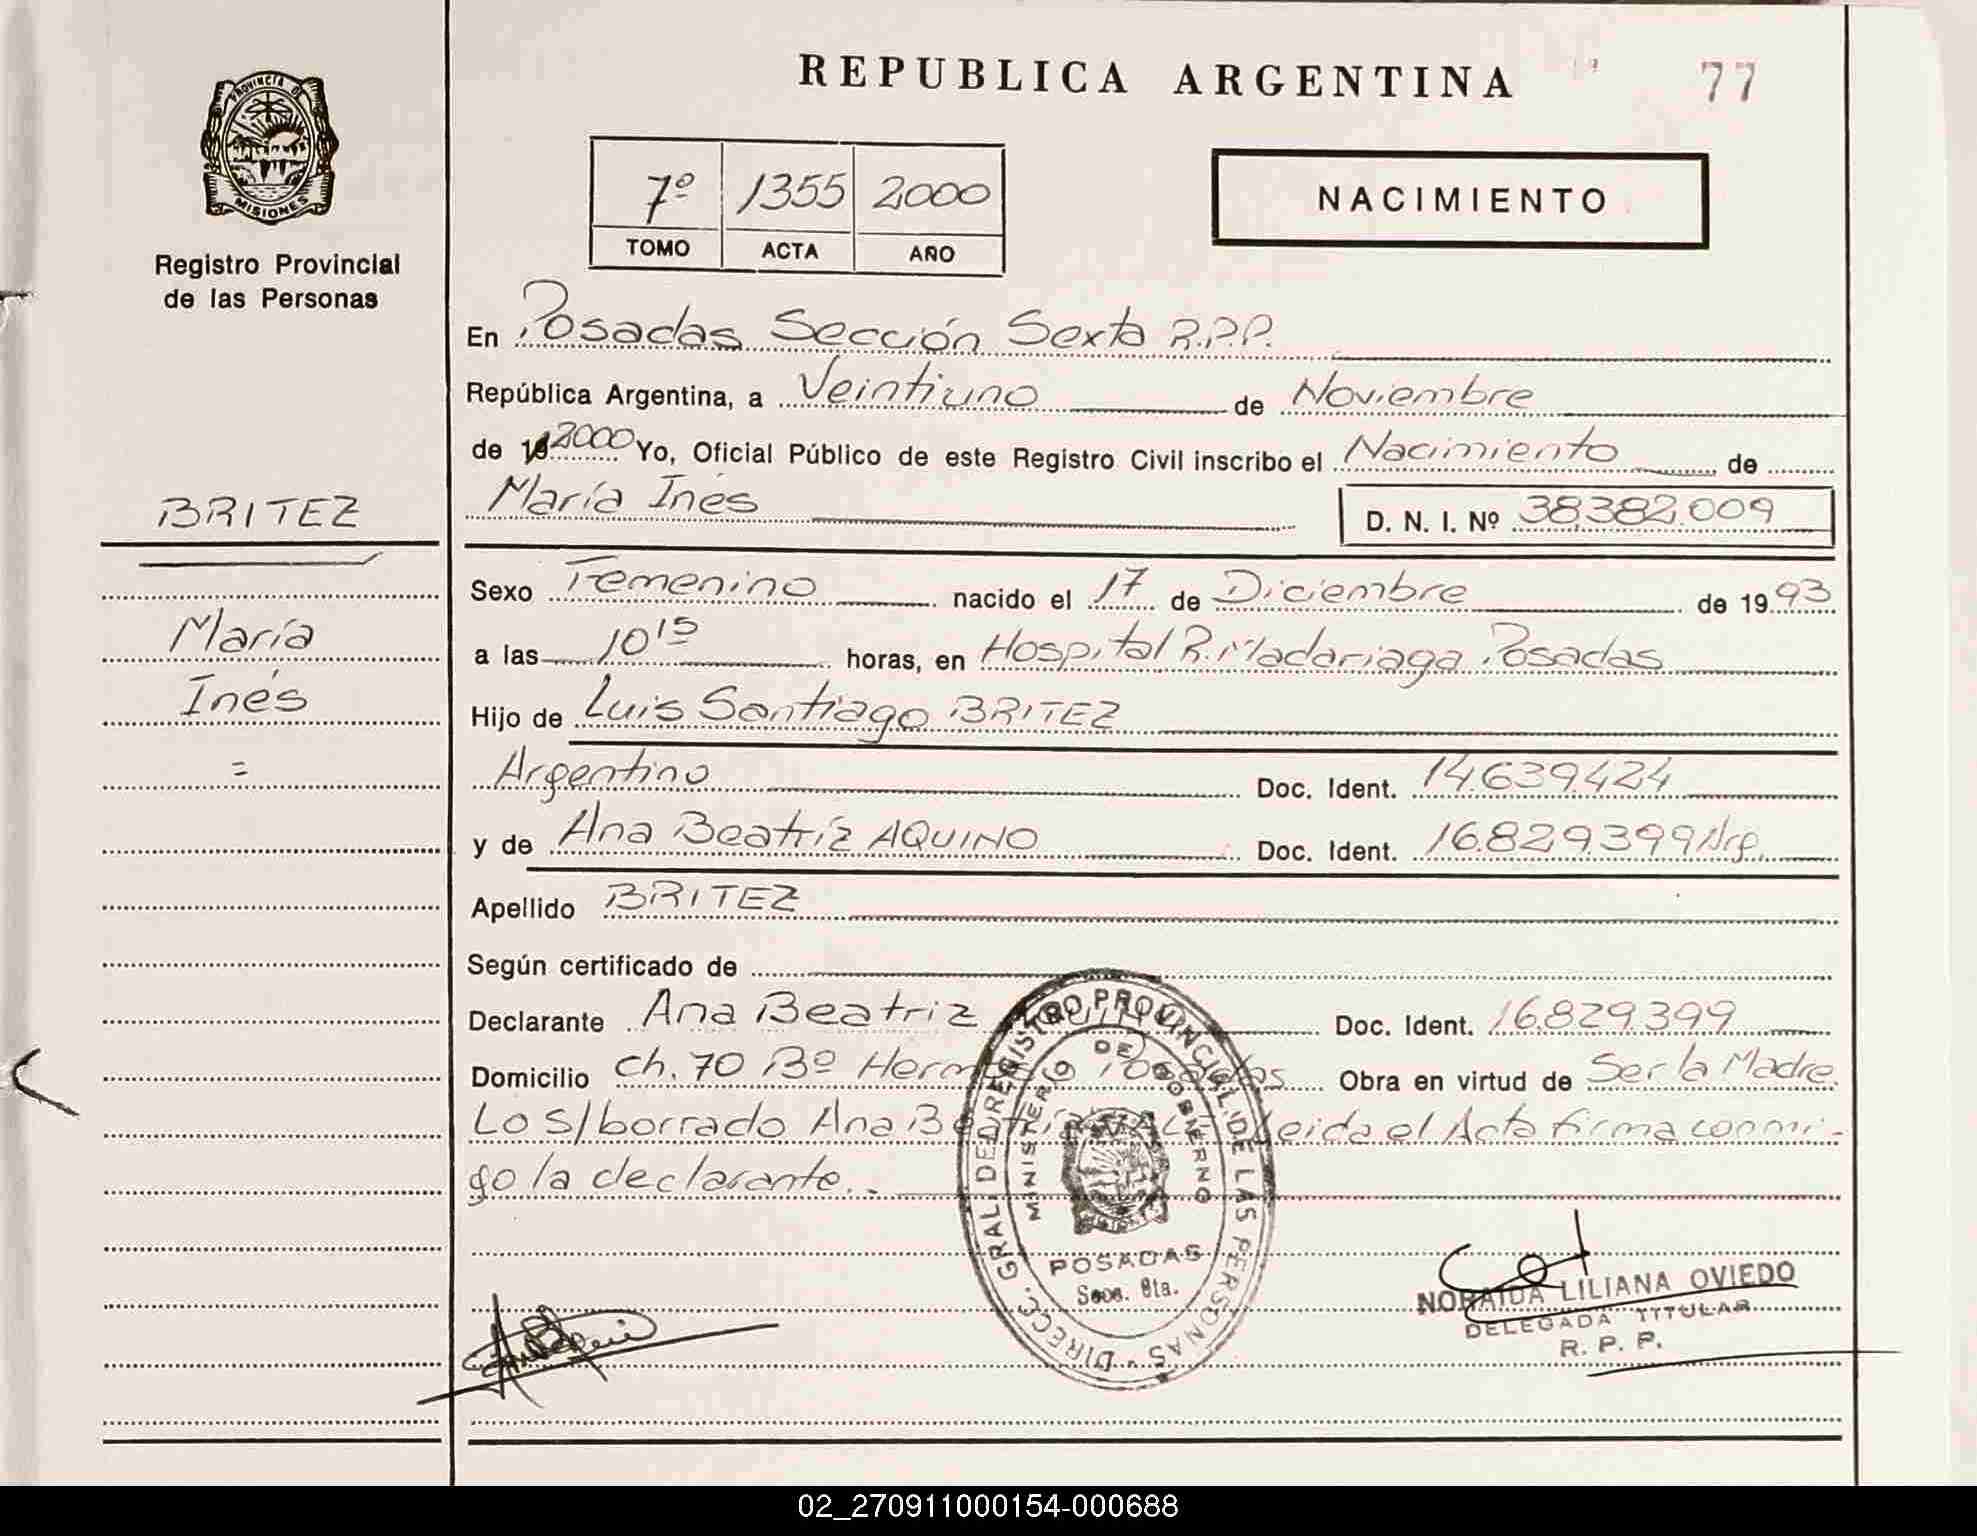 REPUBLICA ARGENTINA
77
PROVINCIA DE
MISIONES
Registro Provincial
de las Personas
7º 1355 2000
TOMO ACTA AÑO
NACIMIENTO
En Posadas Sección Sexta R.P.P.
República Argentina, a Veintiuno de Noviembre
de 19 2000 Yo, Oficial Público de este Registro Civil inscribo el Nacimiento de
María Inés D. N. I. Nº 38.382.009
BRITEZ
María
Inés
=
Sexo Femenino nacido el 17 de Diciembre de 1993
a las 10 15 horas, en Hospital R. Madariaga Posadas
Hijo de Luis Santiago BRITEZ
Argentino Doc. Ident. 14.639.424
y de Ana Beatríz AQUINO Doc. Ident. 16.829.399 Arg.
Apellido BRITEZ
Según certificado de
Declarante Ana Beatriz Doc. Ident. 16.829.399
Domicilio Ch. 70 Bº Posadas Obra en virtud de Ser la Madre
Lo S/borrado Ana Leida el Acta firma conmi-
go la declarante.-
DIRECC. GRAL. DEL REGISTRO PROVINCIAL DE LAS PERSONAS
MINISTERIO DE GOBIERNO
POSADAS
Secc. 6ta.
NORAIDA LILIANA OVIEDO
DELEGADA TITULAR
R. P. P.
02_270911000154-000688